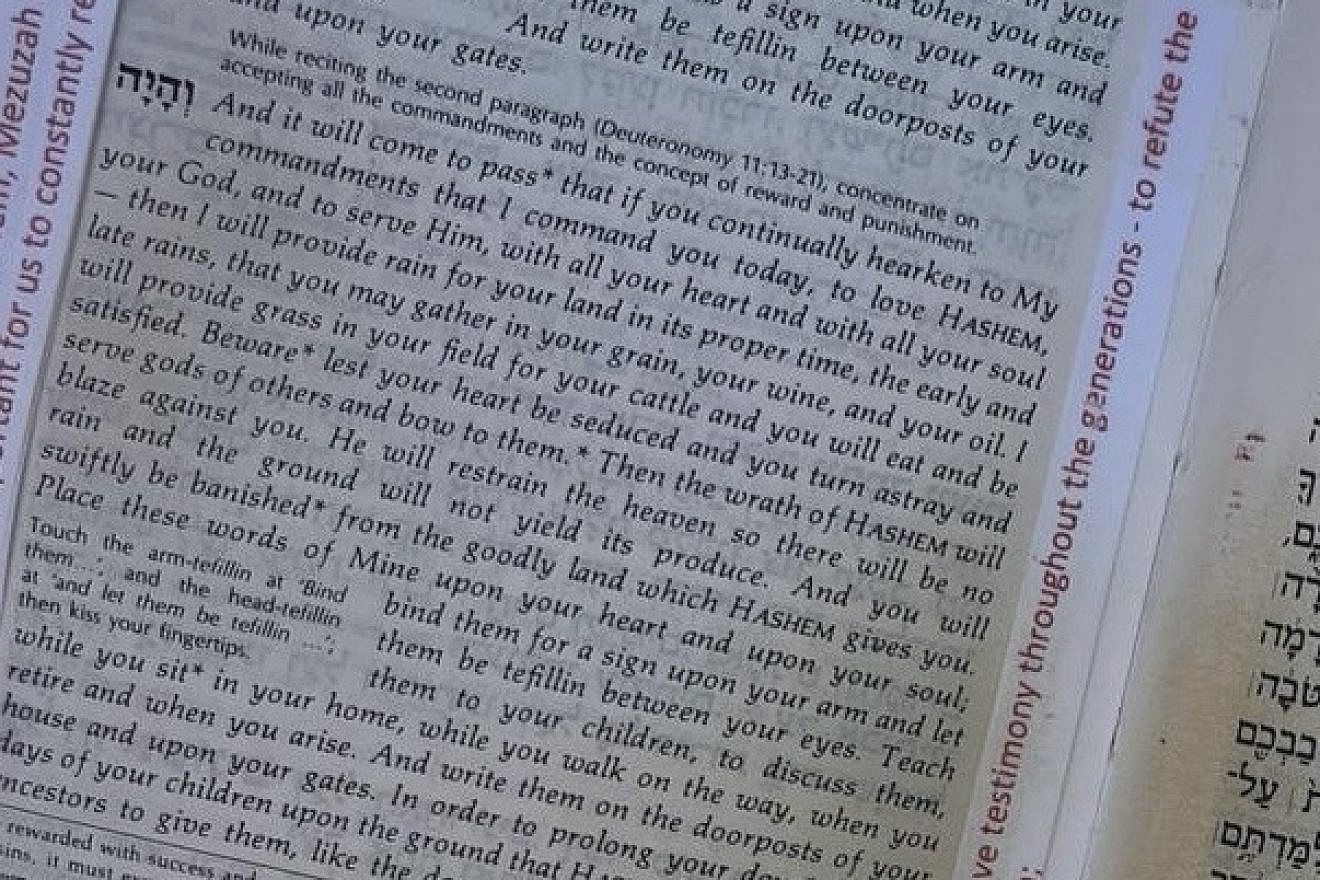 in your
when you arise.
a sign upon your arm and
them be tefillin between your eyes.
And write them on the doorposts of your
upon your gates.
While reciting the second paragraph (Deuteronomy 11:13-21), concentrate on
accepting all the commandments and the concept of reward and punishment.
וְהָיָה And it will come to pass* that if you continually hearken to My
commandments that I command you today, to love HASHEM,
your God, and to serve Him, with all your heart and with all your soul
— then I will provide rain for your land in its proper time, the early and
late rains, that you may gather in your grain, your wine, and your oil. I
will provide grass in your field for your cattle and you will eat and be
satisfied. Beware* lest your heart be seduced and you turn astray and
serve gods of others and bow to them.* Then the wrath of HASHEM will
blaze against you. He will restrain the heaven so there will be no
rain and the ground will not yield its produce. And you will
swiftly be banished* from the goodly land which HASHEM gives you.
Place these words of Mine upon your heart and upon your soul;
Touch the arm-tefillin at 'Bind
them...'; and the head-tefillin
at 'and let them be tefillin ...';
then kiss your fingertips.
bind them for a sign upon your arm and let
them be tefillin between your eyes. Teach
them to your children, to discuss them,
while you sit* in your home, while you walk on the way, when you
retire and when you arise. And write them on the doorposts of your
house and upon your gates. In order to prolong your
days of your children upon the ground that
to give them, like the
rewarded with success and
it must
Mezuzah
for us to constantly
testimony throughout the generations - to refute the
עַל־